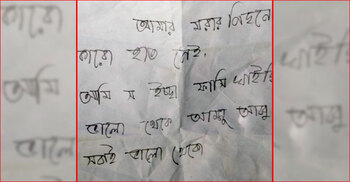 আমার মরার পিছনে
কারো হাত নেই,
আমি স ইচ্ছা ফাসি খাইছি
ভালো থেকো আম্মু আব্বু
সবাই ভালো থেকো